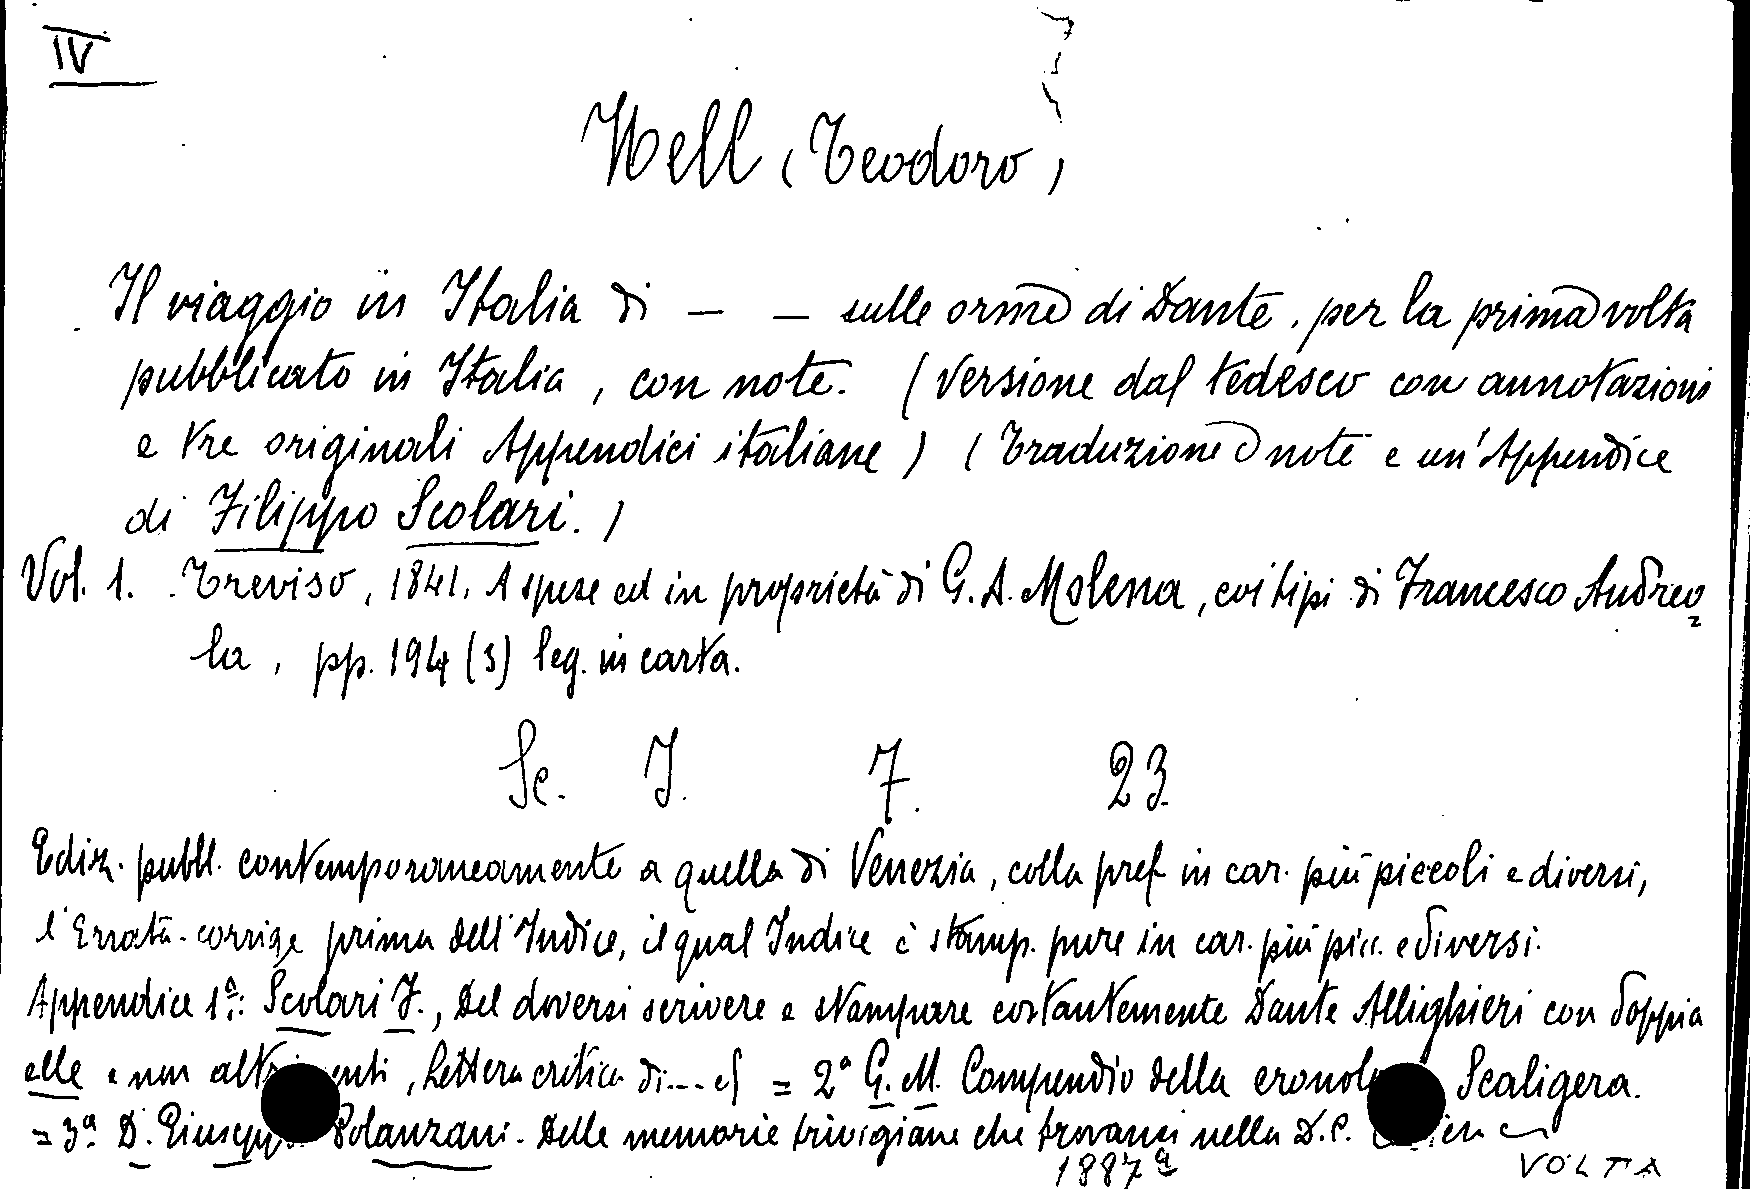 IV
Hell (Teodoro)
Il viaggio in Italia di — — sulle orme di Dante, per la prima volta
pubblicato in Italia, con note. (Versione dal tedesco con annotazioni
e tre originali Appendici italiane) (Traduzione note e un'Appendice
di Filippo Scolari.)
Vol. 1. Treviso, 1841. A spese ed in proprietà di G. A. Molena, coi tipi di Francesco Andreo
la, pp. 194 (3) leg. in carta.
Sc. I. 7. 23.
Ediz. pubbl. contemporaneamente a quella di Venezia, colla pref in car. più piccoli e diversi,
l'Errata-corrige prima dell'Indice, il qual Indice è stamp. pure in car. più picc. e diversi.
Appendice 1ª: Scolari F., Del doversi scrivere e stampare costantemente Dante Allighieri con doppia
elle e non altrimenti, Lettera critica di... = 2ª G. M. Compendio della cronol Scaligera.
= 3ª D. Giuseppe Polanzani. Delle memorie trivigiane che trovansi nella D. C.
1887ª VOLTA